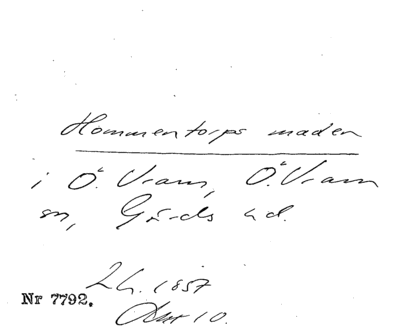 Hommentorps maden
i Ö. Vram, Ö. Vram
sn, Gärds hd.
Lh. 1857
Nr 7792.
Akt 10.